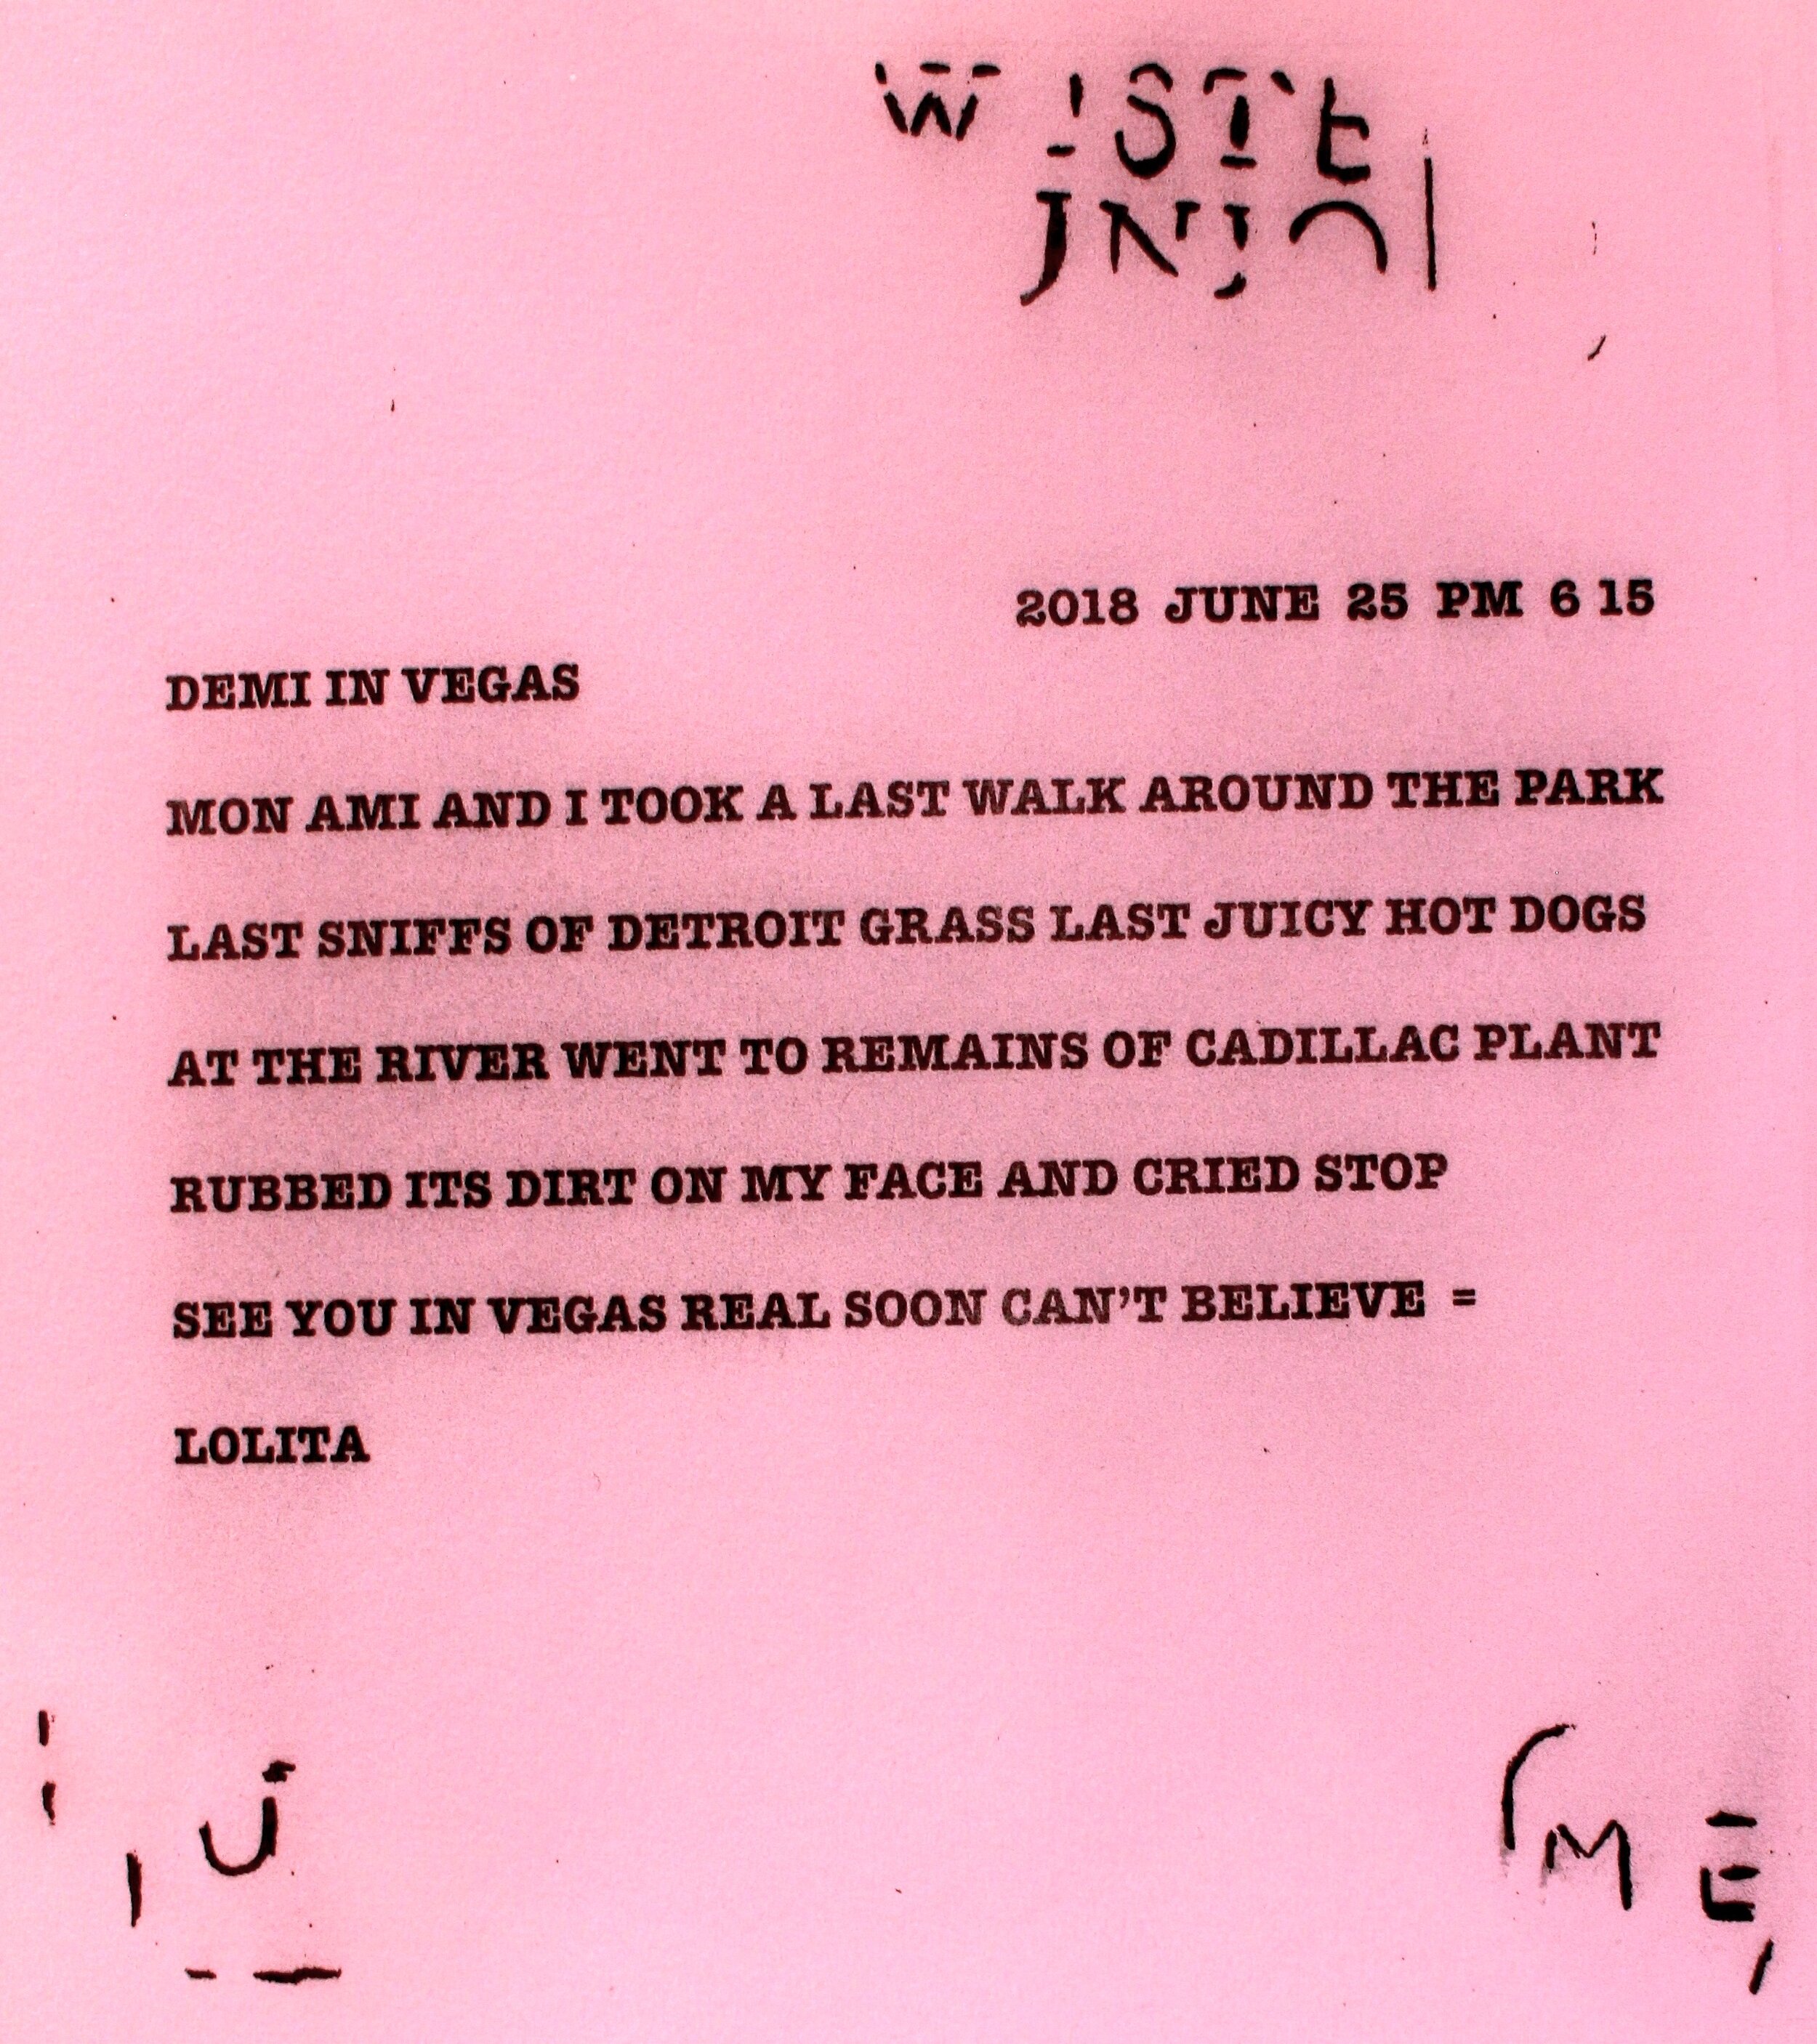 2018 JUNE 25 PM 6 15
DEMI IN VEGAS
MON AMI AND I TOOK A LAST WALK AROUND THE PARK
LAST SNIFFS OF DETROIT GRASS LAST JUICY HOT DOGS
AT THE RIVER WENT TO REMAINS OF CADILLAC PLANT
RUBBED ITS DIRT ON MY FACE AND CRIED STOP
SEE YOU IN VEGAS REAL SOON CAN'T BELIEVE =
LOLITA